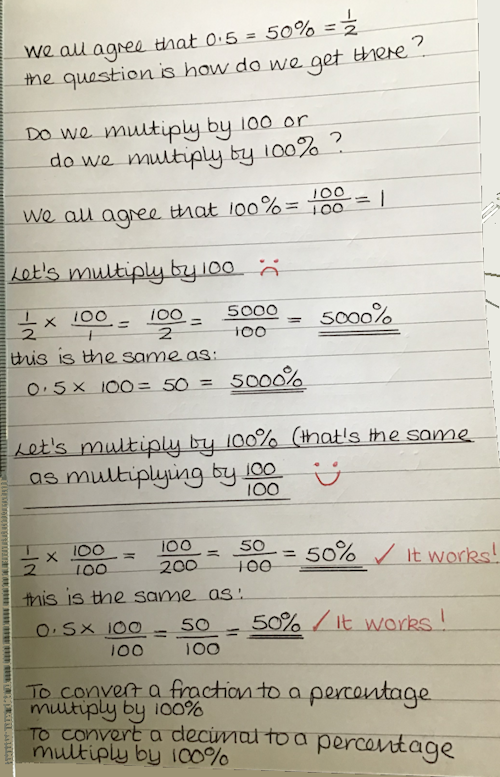 We all agree that 0.5 = 50% = 1/2
the question is how do we get there?
Do we multiply by 100 or
do we multiply by 100%?
We all agree that 100% = 100/100 = 1
Let's multiply by 100 ☹
1/2 × 100/1 = 100/2 = 5000/100 = 5000%
this is the same as:
0.5 × 100 = 50 = 5000%
Let's multiply by 100% (that's the same
as multiplying by 100/100 ☺
1/2 × 100/100 = 100/200 = 50/100 = 50% ✓ It works!
this is the same as:
0.5 × 100/100 = 50/100 = 50% ✓ It works!
To convert a fraction to a percentage
multiply by 100%
To convert a decimal to a percentage
multiply by 100%